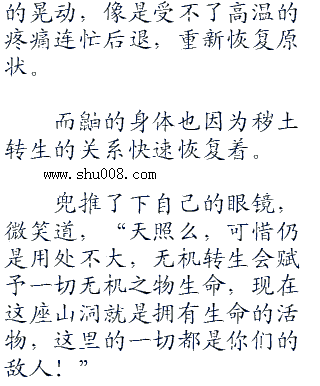 的晃动，像是受不了高温的
疼痛连忙后退，重新恢复原
状。
而鼬的身体也因为秽土
转生的关系快速恢复着。
www.shu008.com
兜推了下自己的眼镜，
微笑道，“天照么，可惜仍
是用处不大，无机转生会赋
予一切无机之物生命，现在
这座山洞就是拥有生命的活
物，这里的一切都是你们的
敌人！”